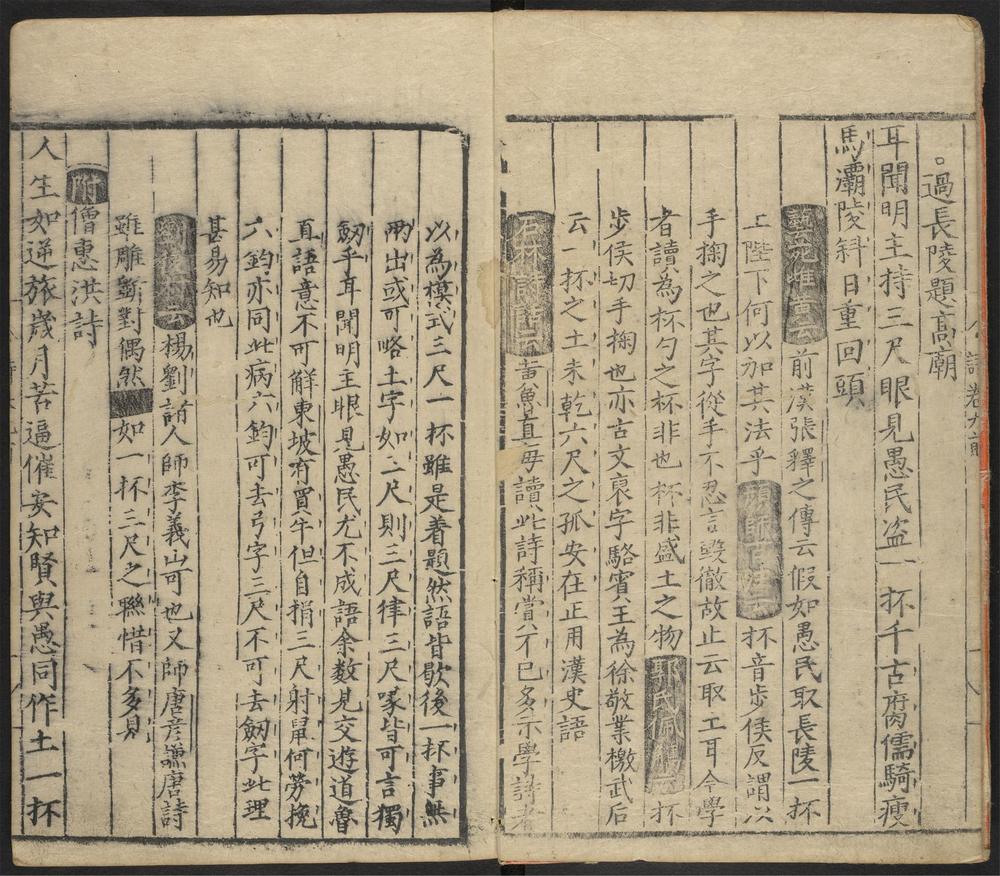 過長陵題高廟
耳聞明主持三尺眼見愚民盗一抔千古腐儒騎瘦
馬灞陵斜日重回頭
藝苑雌黄云前漢張釋之傳云假如愚民取長陵一抔
土陛下何以加其法乎顔師古注云抔音步侯反謂以
手掬之也其字從手不忍言毀徹故止云取土耳今學
者讀為杯勺之杯非也杯非盛土之物郭氏佩觿云抔
步侯切手掬也亦古文裒字駱賓王為徐敬業檄武后
云一抔之土未乾六尺之孤安在正用漢史語
石林詩話云黄魯直每讀此詩稱賞不已多示學詩者
以為模式三尺一抔雖是着題然語皆歇後一抔事無
兩出或可略土字如三尺則三尺律三尺喙皆可言獨
劒乎耳聞明主眼見愚民尤不成語余数見交遊道魯
直語意不可觧東坡有買牛但自捐三尺射鼠何勞挽
六鈞亦同此病六鈞可去弓字三尺不可去劒字此理
甚易知也
云楊劉前人師李義山可也又師唐彦謙唐詩
雖雕斵對偶然如一抔三尺之聯惜不多見
附僧惠洪詩
人生如逆旅歲月苦逼催安知賢與愚同作土一抔